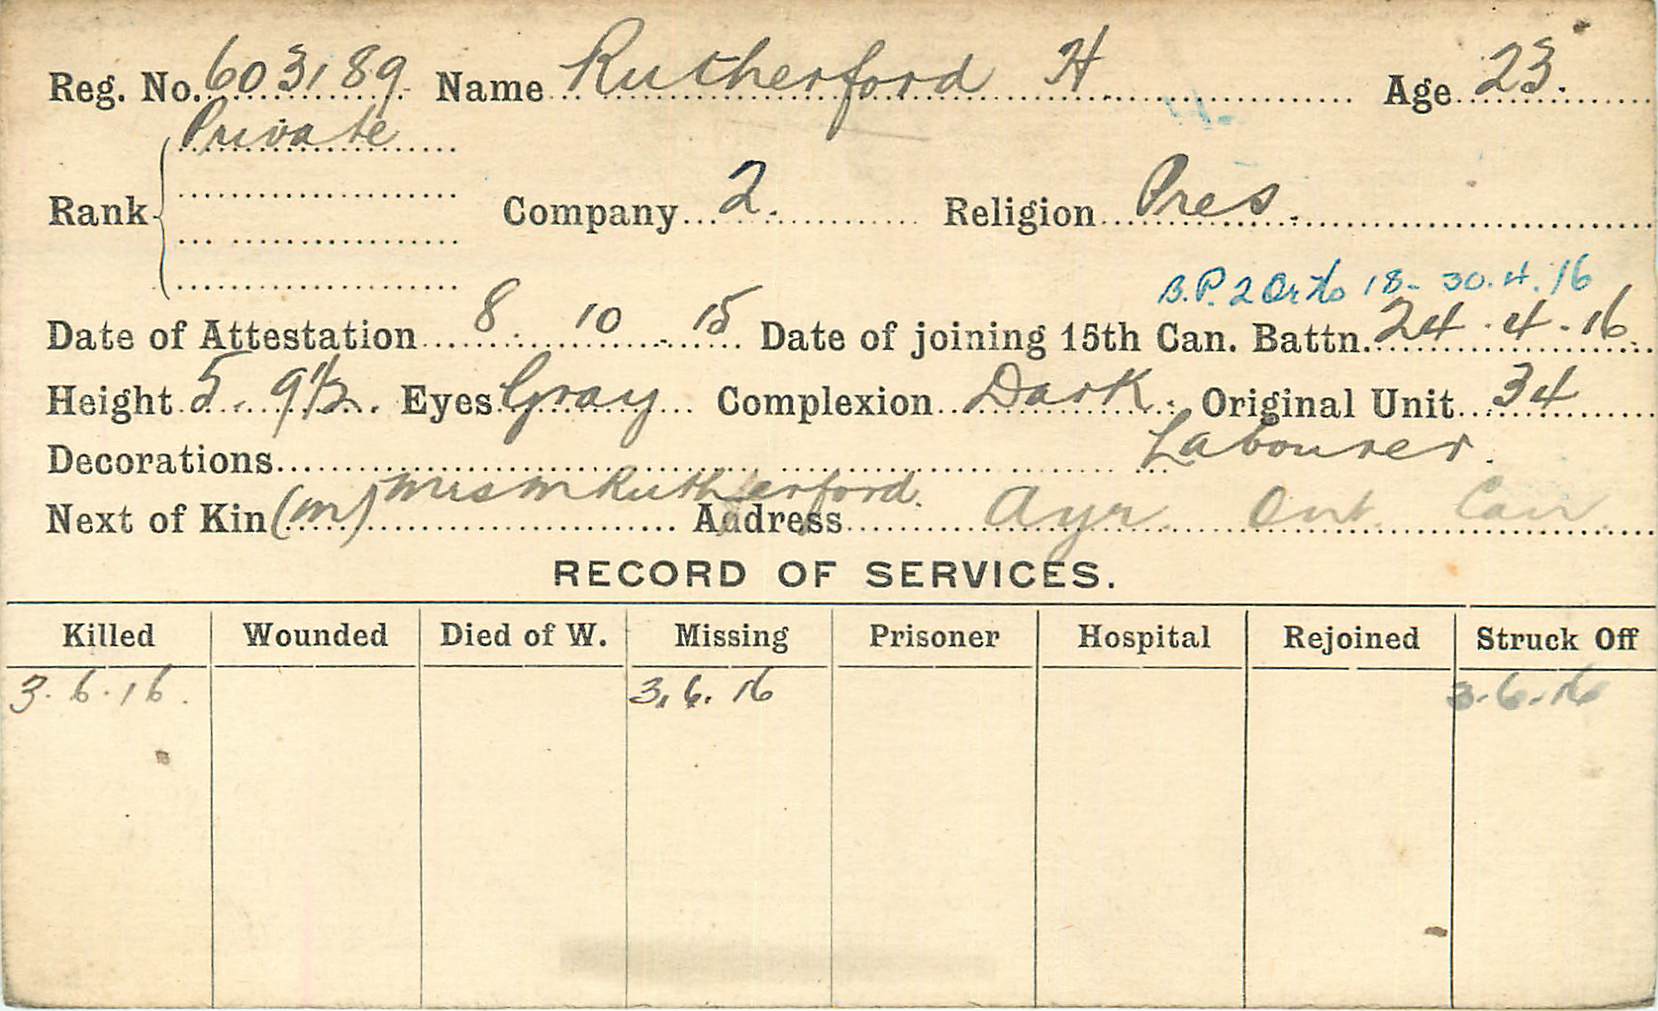 Reg. No. 603189 Name Rutherford H. Age 23.
Private
Rank Company 2. Religion Pres.
B.P. 2 18 - 30.4.16
Date of Attestation 8. 10 15 Date of joining 15th Can. Battn. 24.4.16.
Height 5. 9 1/2. Eyes Gray Complexion Dark. Original Unit 34
Decorations Labourer.
Next of Kin (m) Mrs M Rutherford. Address Ayr. Ont. Can.
RECORD OF SERVICES.
Killed Wounded Died of W. Missing Prisoner Hospital Rejoined Struck Off
3.6.16. 3.6.16 3.6.16